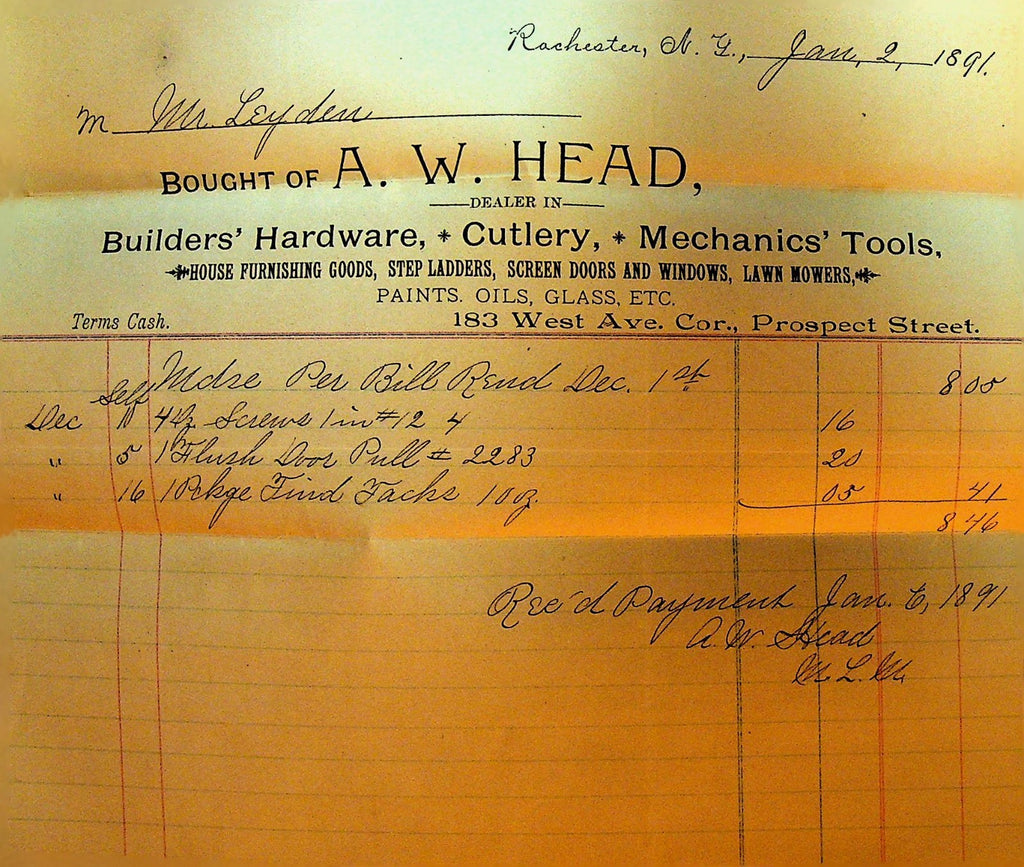 Rochester, N. Y., Jan. 2, 1891.
M Mr. Leyden
BOUGHT OF A. W. HEAD,
DEALER IN
Builders' Hardware, * Cutlery, * Mechanics' Tools,
HOUSE FURNISHING GOODS, STEP LADDERS, SCREEN DOORS AND WINDOWS, LAWN MOWERS,
PAINTS. OILS, GLASS, ETC.
Terms Cash. 183 West Ave. Cor., Prospect Street.
Mdse Per Bill Rend Dec. 1st 8 05
Self
Dec 4 Dz Screws 1 in #12 4 16
" 5 1 Flush Door Pull # 2283 20
" 16 1 Pckge Tind Tacks 10 oz. 05 41
8 46
Rec'd Payment Jan. 6, 1891
A. W. Head
M. L. M.